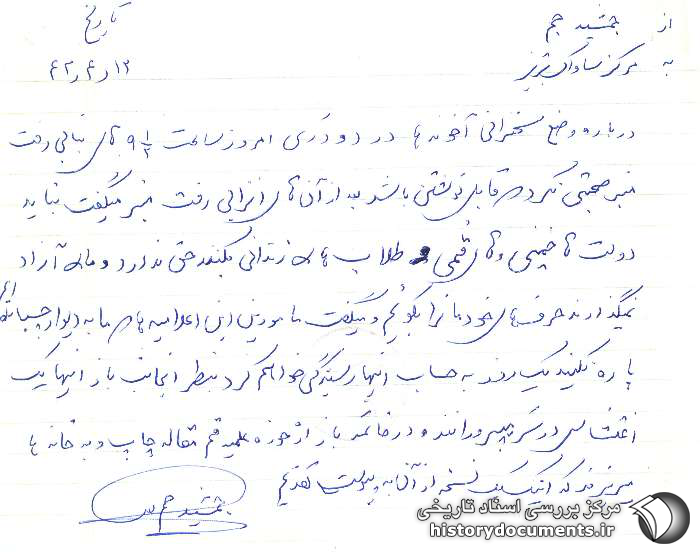 از جمشید جم
تاریخ
به مرکز ساواک تبریز
۴۲/۴/۱۲
درباره وضع سخنرانی آخوندها در دو دَری امروز ساعت ۹ ۱/۲ آقای رفت
منبر صحبتی نکرد که قابل نوشتن باشد بعد از آن آقای انزابی رفت منبر میگفت نباید
دولت آقا خمینی و آقای قمی و طلاب های زندانی بکنند حق ندارد و ما آزاد
نمیگذارند حرفهای خودمان را بگوئیم و میگفت مامورین این اعلامیه های ما به دیوار چسبانده‌ایم
پاره نکنید یک روز به حساب اینها رسیدگی خواهم کرد بنظر اینجانب باز اینها یک
اغتشاش در سر میپرورانند و در خاتمه باز از حوزه علمیه قم مقاله چاپ و به خانه ها
میریزند که اینک یک نسخه از آن به پیوست تقدیم
جمشید جم
مرکز بررسی اسناد تاریخی
historydocuments.ir